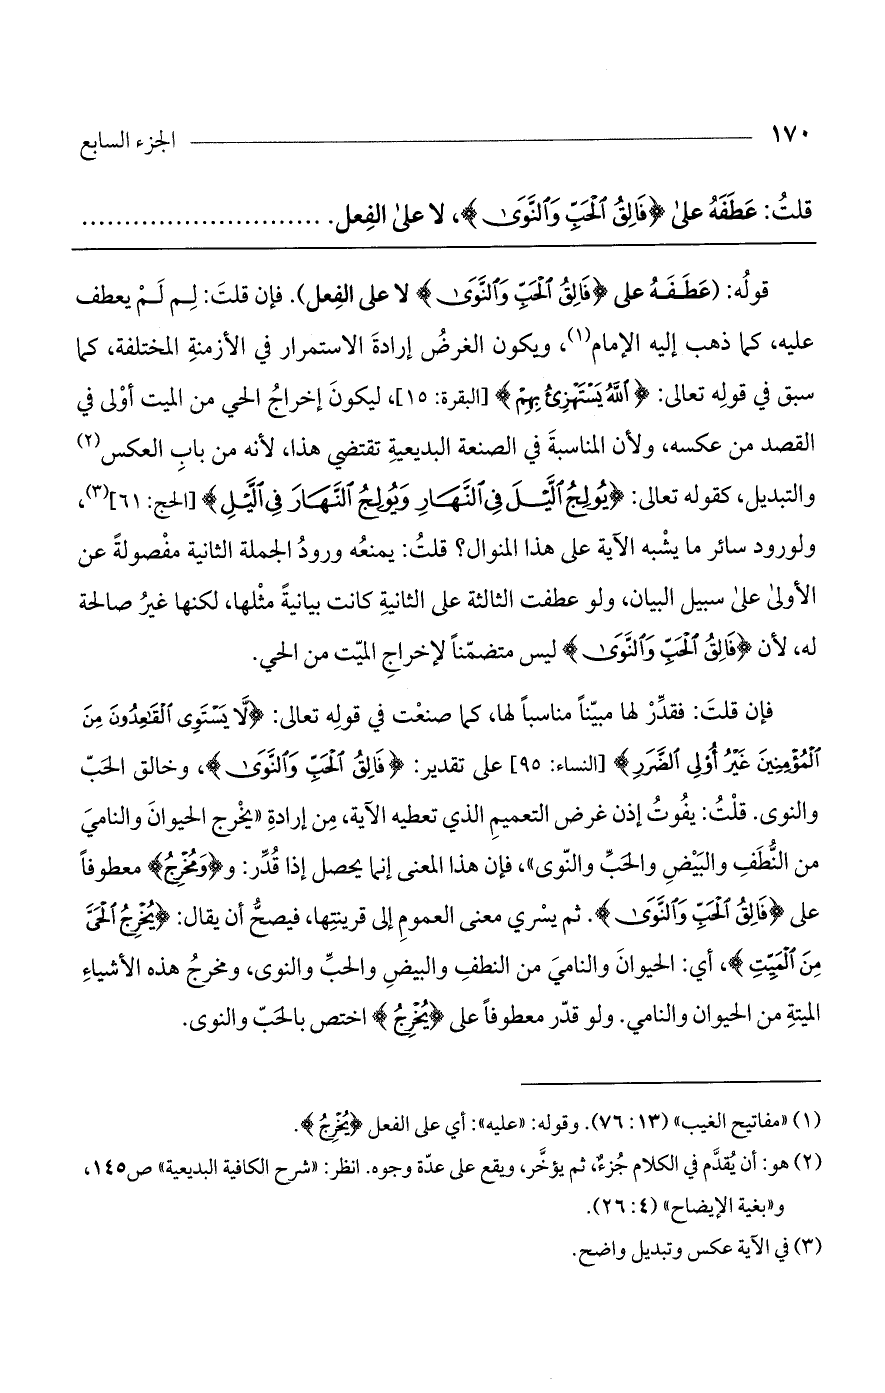 ١٧٠ الجزء السابع
قلتُ: عَطَفَهُ على ﴿فَالِقُ ٱلْحَبِّ وَٱلنَّوَىٰ﴾، لا على الفِعل. ............................
قولُه: (عَطَـفَـهُ على ﴿فَالِقُ ٱلْحَبِّ وَٱلنَّوَىٰ﴾ لا على الفِعل). فإن قلتَ: لِـم لَـمْ يعطف
عليه، كما ذهب إليه الإمام(١)، ويكون الغرضُ إرادةَ الاستمرار في الأزمنةِ المختلفة، كما
سبق في قولِه تعالى: ﴿ٱللَّهُ يَسْتَهْزِئُ بِهِمْ﴾ [البقرة: ١٥]، ليكونَ إخراجُ الحي من الميت أوْلى في
القصد من عكسه، ولأن المناسبةَ في الصنعة البديعيةِ تقتضي هذا، لأنه من بابِ العكس(٢)
والتبديل، كقوله تعالى: ﴿يُولِجُ ٱلَّيْـلَ فِى ٱلنَّهَـارِ وَيُولِجُ ٱلنَّهَـارَ فِى ٱلَّيْـلِ﴾ [الحج: ٦١](٣)،
ولورود سائر ما يشْبه الآية على هذا المنوال؟ قلتُ: يمنعُه ورودُ الجملة الثانية مفْصولةً عن
الأولىٰ علىٰ سبيل البيان، ولو عطفت الثالثة على الثانيةِ كانت بيانيةً مثْلها، لكنها غيرُ صالحة
له، لأن ﴿فَالِقُ ٱلْحَبِّ وَٱلنَّوَىٰ﴾ ليس متضمّناً لإخراجِ الميّت من الحي.
فإن قلتَ: فقدِّرْ لها مبيّناً مناسباً لها، كما صنعْت في قولِه تعالى: ﴿لَّا يَسْتَوِى ٱلْقَـٰعِدُونَ مِنَ
ٱلْمُؤْمِنِينَ غَيْرُ أُو۟لِى ٱلضَّرَرِ﴾ [النساء: ٩٥] على تقدير: ﴿فَالِقُ ٱلْحَبِّ وَٱلنَّوَىٰ﴾، وخالق الحَبّ
والنوى. قلْتُ: يفُوتُ إذن غرض التعميمِ الذي تعطيه الآية، مِن إرادةِ «يخْرج الحيوانَ والناميَ
من النُّطَفِ والبَيْضِ والحَبِّ والنّوى»، فإن هذا المعنى إنما يحصل إذا قُدِّر: و﴿وَمُخْرِجُ﴾ معطوفاً
على ﴿فَالِقُ ٱلْحَبِّ وَٱلنَّوَىٰ﴾. ثم يسْري معنى العمومِ إلى قرينتِها، فيصحُّ أن يقال: ﴿يُخْرِجُ ٱلْحَىَّ
مِنَ ٱلْمَيِّتِ﴾، أي: الحيوانَ والناميَ من النطفِ والبيضِ والحبِّ والنوى، ومخرجُ هذه الأشياءِ
الميتةِ من الحيوان والنامي. ولو قدّر معطوفاً على ﴿يُخْرِجُ﴾ اختص بالحَبّ والنوى.
(١) «مفاتيح الغيب» (١٣: ٧٦). وقوله: «عليه»: أي على الفعل ﴿يُخْرِجُ﴾.
(٢) هو: أن يُقدَّم في الكلام جُزءٌ، ثم يؤخَّر، ويقع على عدّة وجوه. انظر: «شرح الكافية البديعية» ص١٤٥،
و«بغية الإيضاح» (٤: ٢٦).
(٣) في الآية عكس وتبديل واضح.